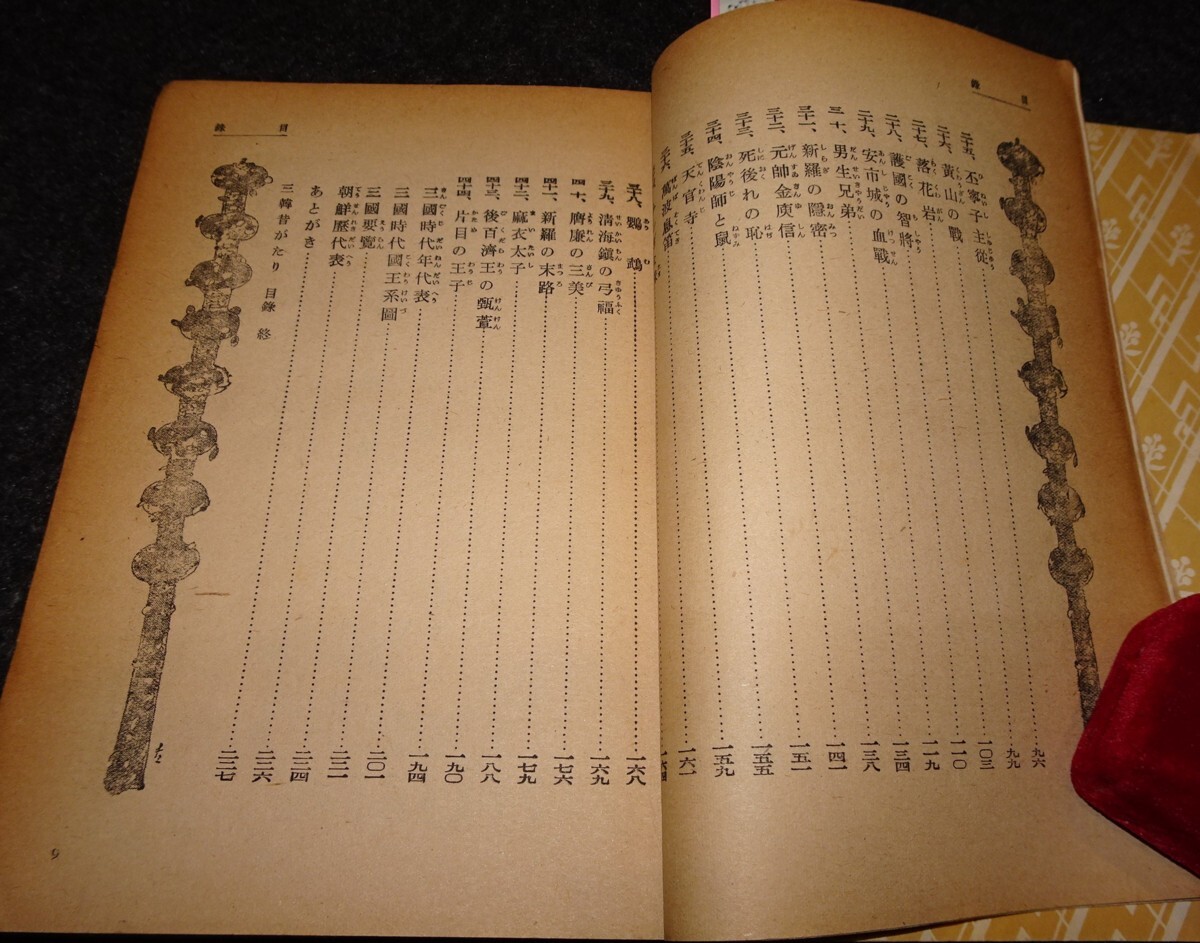 目錄
二十五、丕寧子主從 九六
二十六、黃山の戰 九九
二十七、落花岩 一〇三
二十八、護國の智將 一一〇
二十九、安市城の血戰 一一九
三十、男生兄弟 一三四
三十一、新羅の隱密 一三八
三十二、元帥金庾信 一四一
三十三、死後れの恥 一五一
三十四、陰陽師と鼠 一五五
三十五、天官寺 一五九
三十六、萬波息笛 一六一
一六四
目錄
三十八、鸚鵡 一六八
三十九、清海鎭の弓福 一六九
四十、膺廉の三美 一七六
四十一、新羅の末路 一七九
四十二、麻衣太子 一八八
四十三、後百濟王の甄萱 一九〇
四十四、片目の王子 一九四
三國時代年代表 二〇一
三國時代國王系圖 二二一
三國要覽 二二四
朝鮮歷代表 二二六
あとがき 二二七
三韓昔がたり 目錄 終
9